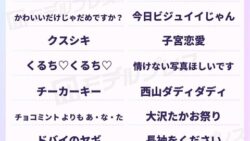 かわいいだけじゃだめですか？
今日ビジュイイじゃん
クスシキ
子宮恋愛
くるち♡くるち♡
情けない写真ほしいです
チーカーキー
西山ダディダディ
チョコミント よりも あ・な・た
大沢たかお祭り
ドバイのヤギ
長袖をください